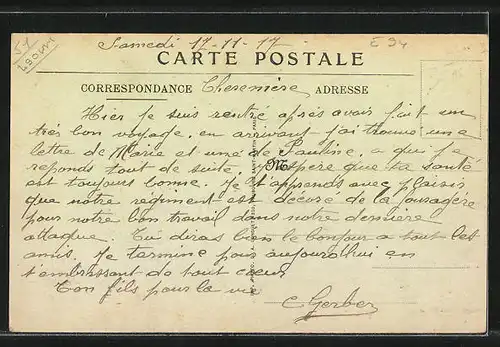 Samedi 17-11-17
E 94
CARTE POSTALE
CORRESPONDANCE Cheremère ADRESSE
Hier je suis rentré après avoir fait un
très bon voyage, en arrivant j'ai trouvé une
lettre de Marie et une de Pauline, a qui je
reponds tout de suite, j'espère que ta santé
est toujours bonne. Je t'apprends avec plaisir
que notre régiment est décoré de la fouragère
pour notre bon travail dans notre dernière
attaque. Tu diras bien le bonjour a tout les
amis. Je termine pour aujourd'hui en
t'embrassant de tout cœur
Ton fils pour la vie
C Gerber